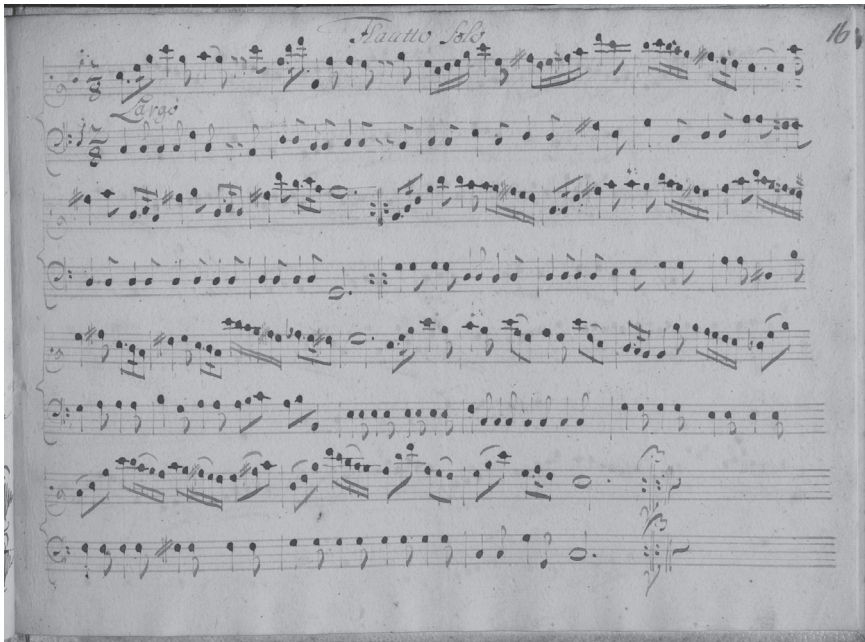 Flautto Solo
16
Largo